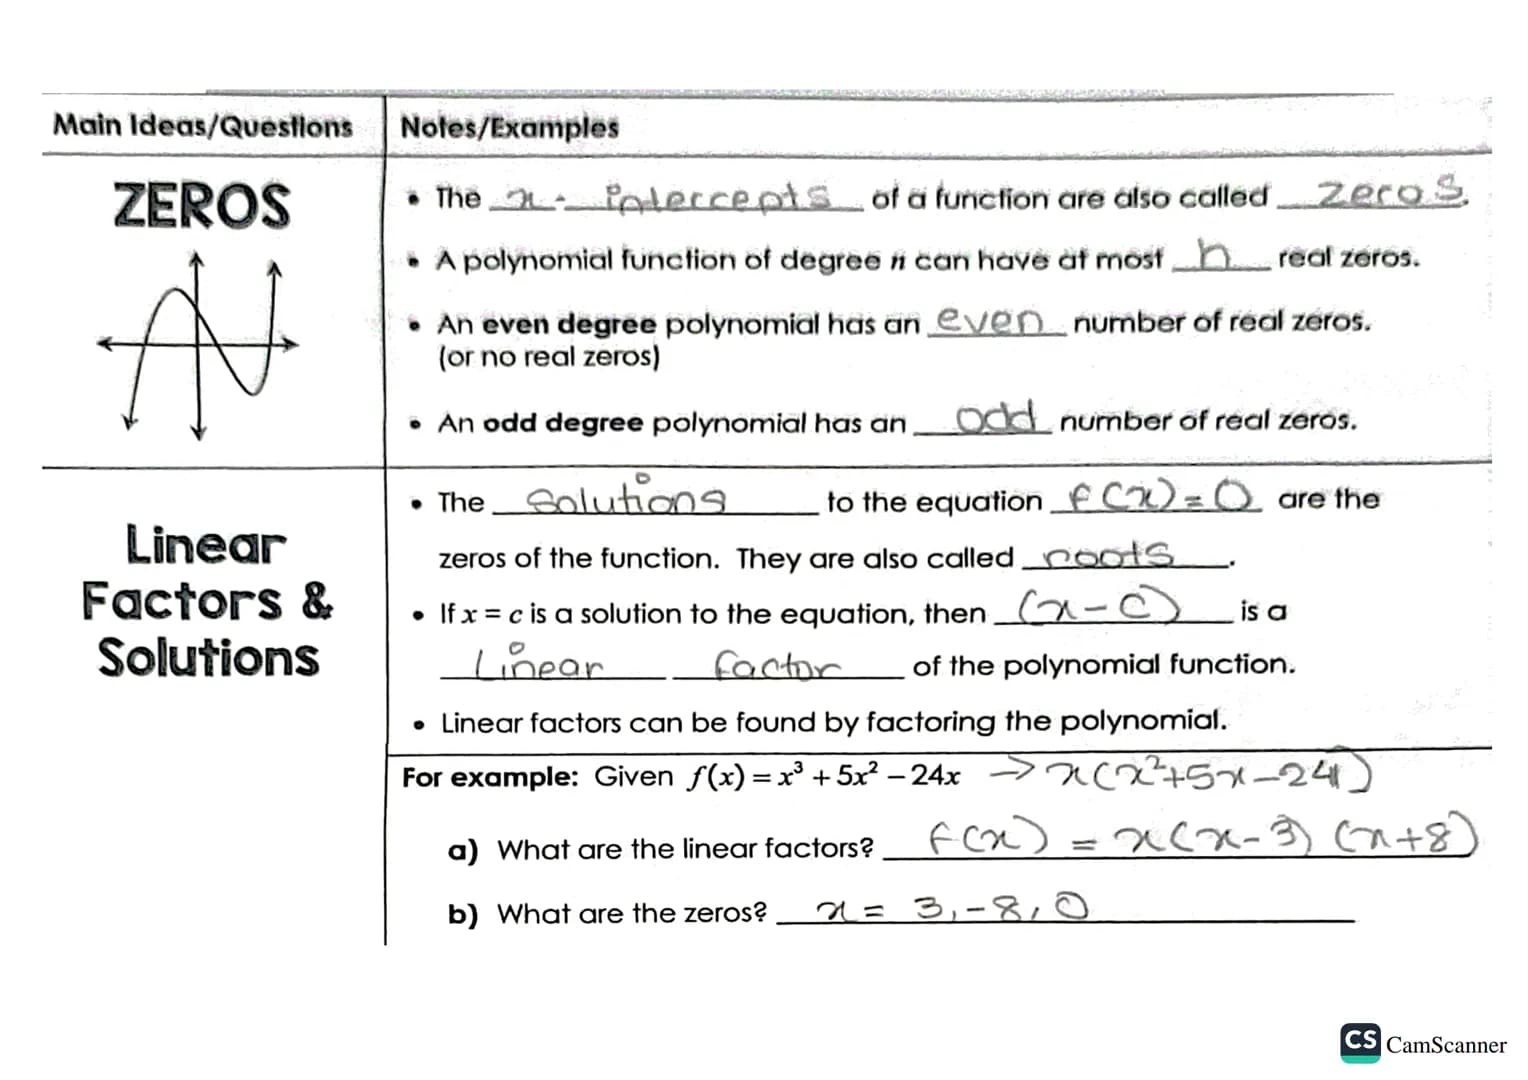 Main Ideas/Questions
Notes/Examples
ZEROS
• The x-intercepts of a function are also called zeros.
• A polynomial function of degree n can have at most n real zeros.
• An even degree polynomial has an even number of real zeros.
(or no real zeros)
• An odd degree polynomial has an odd number of real zeros.
Linear
Factors &
Solutions
• The Solutions to the equation f(x)=0 are the
zeros of the function. They are also called roots.
• If x = c is a solution to the equation, then (x-c) is a
Linear factor of the polynomial function.
• Linear factors can be found by factoring the polynomial.
For example: Given f(x) = x³ + 5x² – 24x → x(x²+5x-24)
a) What are the linear factors? f(x) = x(x-3)(x+8)
b) What are the zeros? x = 3, -8, 0
CS CamScanner